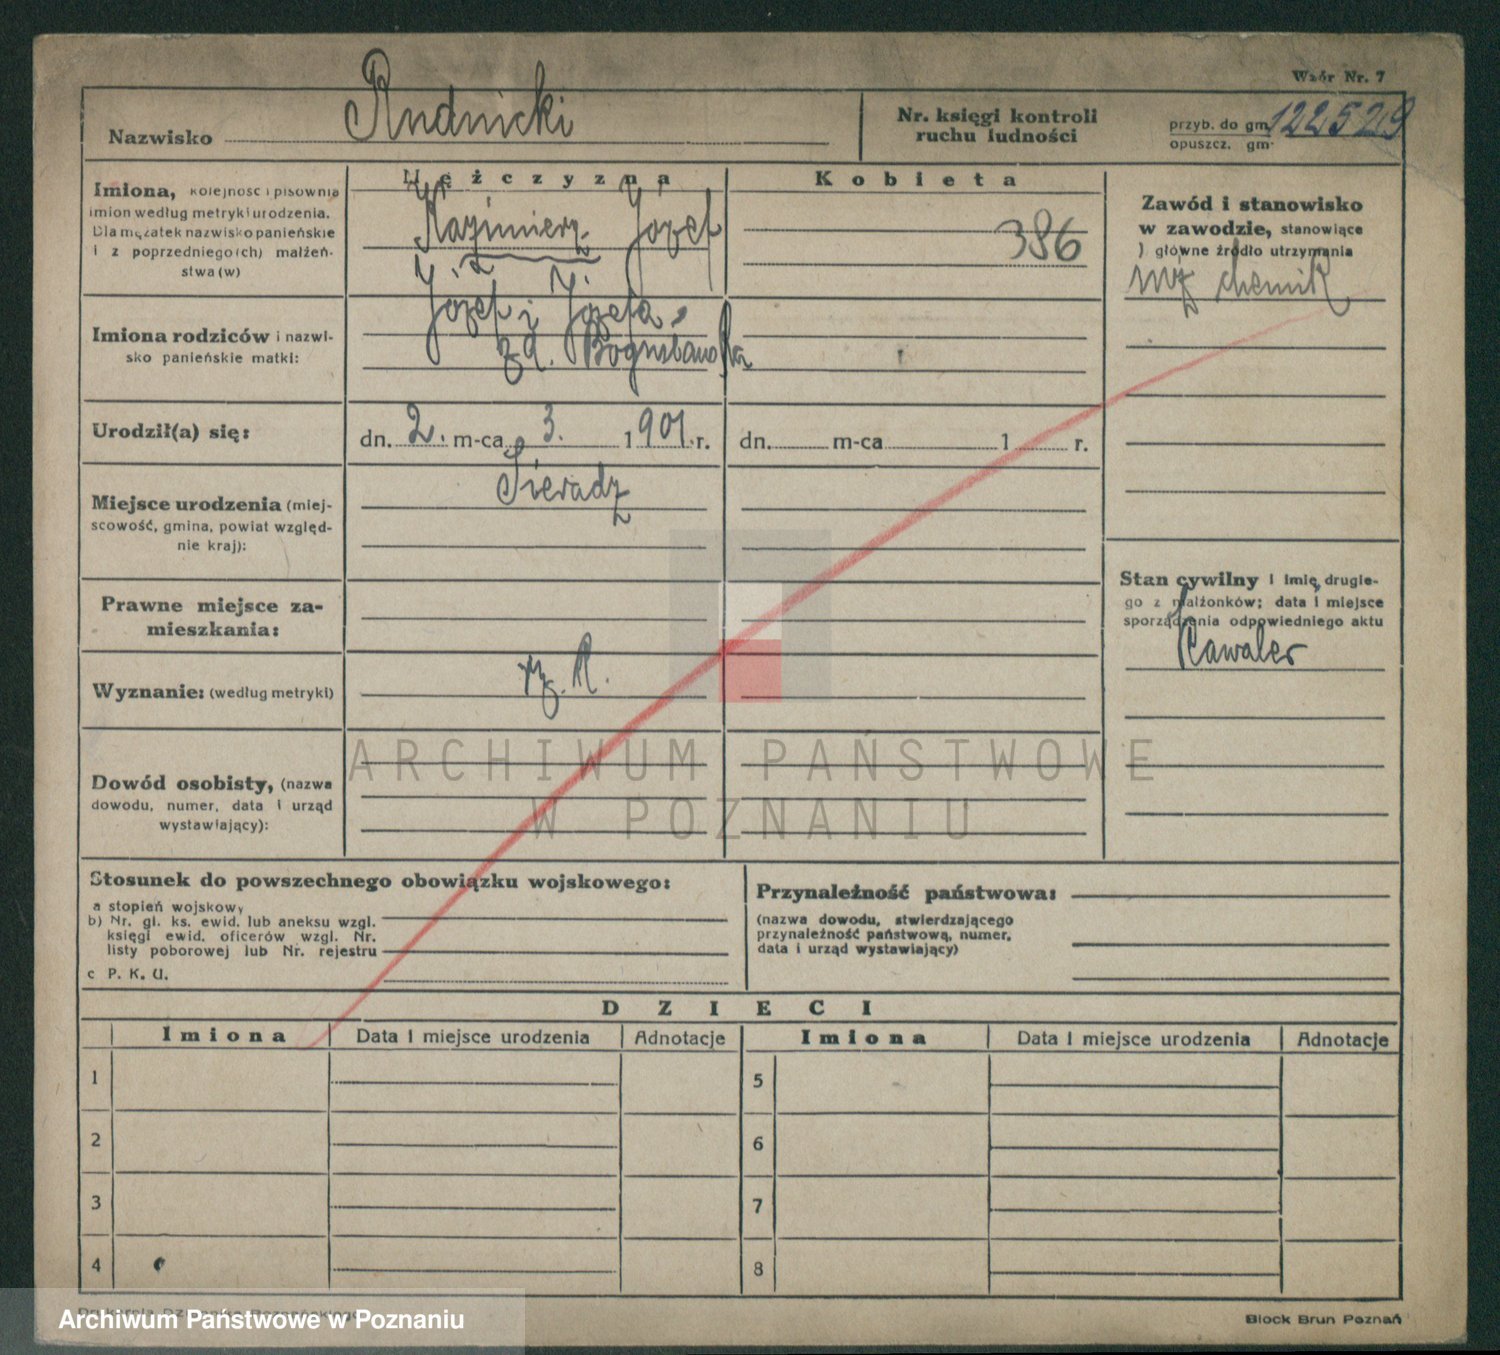 Wzór Nr. 7
Nazwisko Rudnicki
Nr. księgi kontroli
ruchu ludności
przyb. do gm. 122529
opuszcz. gm.
Imiona, kolejność i pisownia
imion według metryki urodzenia.
Dla mężatek nazwisko panieńskie
i z poprzedniego(ch) małżeń-
stwa (w)
Mężczyzna
Kazimierz Józef
Kobieta
386
Zawód i stanowisko
w zawodzie, stanowiące
) główne źródło utrzymania
inż chemik
Imiona rodziców i nazwi-
sko panieńskie matki:
Józef i Józefa
Bogusławska
Urodził(a) się:
dn. 2. m-ca 3. 1901 r.
dn. m-ca 1 r.
Miejsce urodzenia (miej-
scowość, gmina, powiat względ-
nie kraj):
Sieradz
Prawne miejsce za-
mieszkania:
Stan cywilny i imię drugie-
go z małżonków; data i miejsce
sporządzenia odpowiedniego aktu
Kawaler
Wyznanie: (według metryki)
rz. k.
Dowód osobisty, (nazwa
dowodu, numer, data i urząd
wystawiający):
ARCHIWUM PAŃSTWOWE
W POZNANIU
Stosunek do powszechnego obowiązku wojskowego:
a stopień wojskowy
b) Nr. gl. ks. ewid. lub aneksu wzgl.
księgi ewid. oficerów wzgl. Nr.
listy poborowej lub Nr. rejestru
c P. K. U.
Przynależność państwowa:
(nazwa dowodu, stwierdzającego
przynależność państwową, numer,
data i urząd wystawiający)
DZIECI
Imiona Data i miejsce urodzenia Adnotacje Imiona Data i miejsce urodzenia Adnotacje
1 5
2 6
3 7
4 8
Drukarnia Dziennika Poznańskiego
Block Brun Poznań
Archiwum Państwowe w Poznaniu